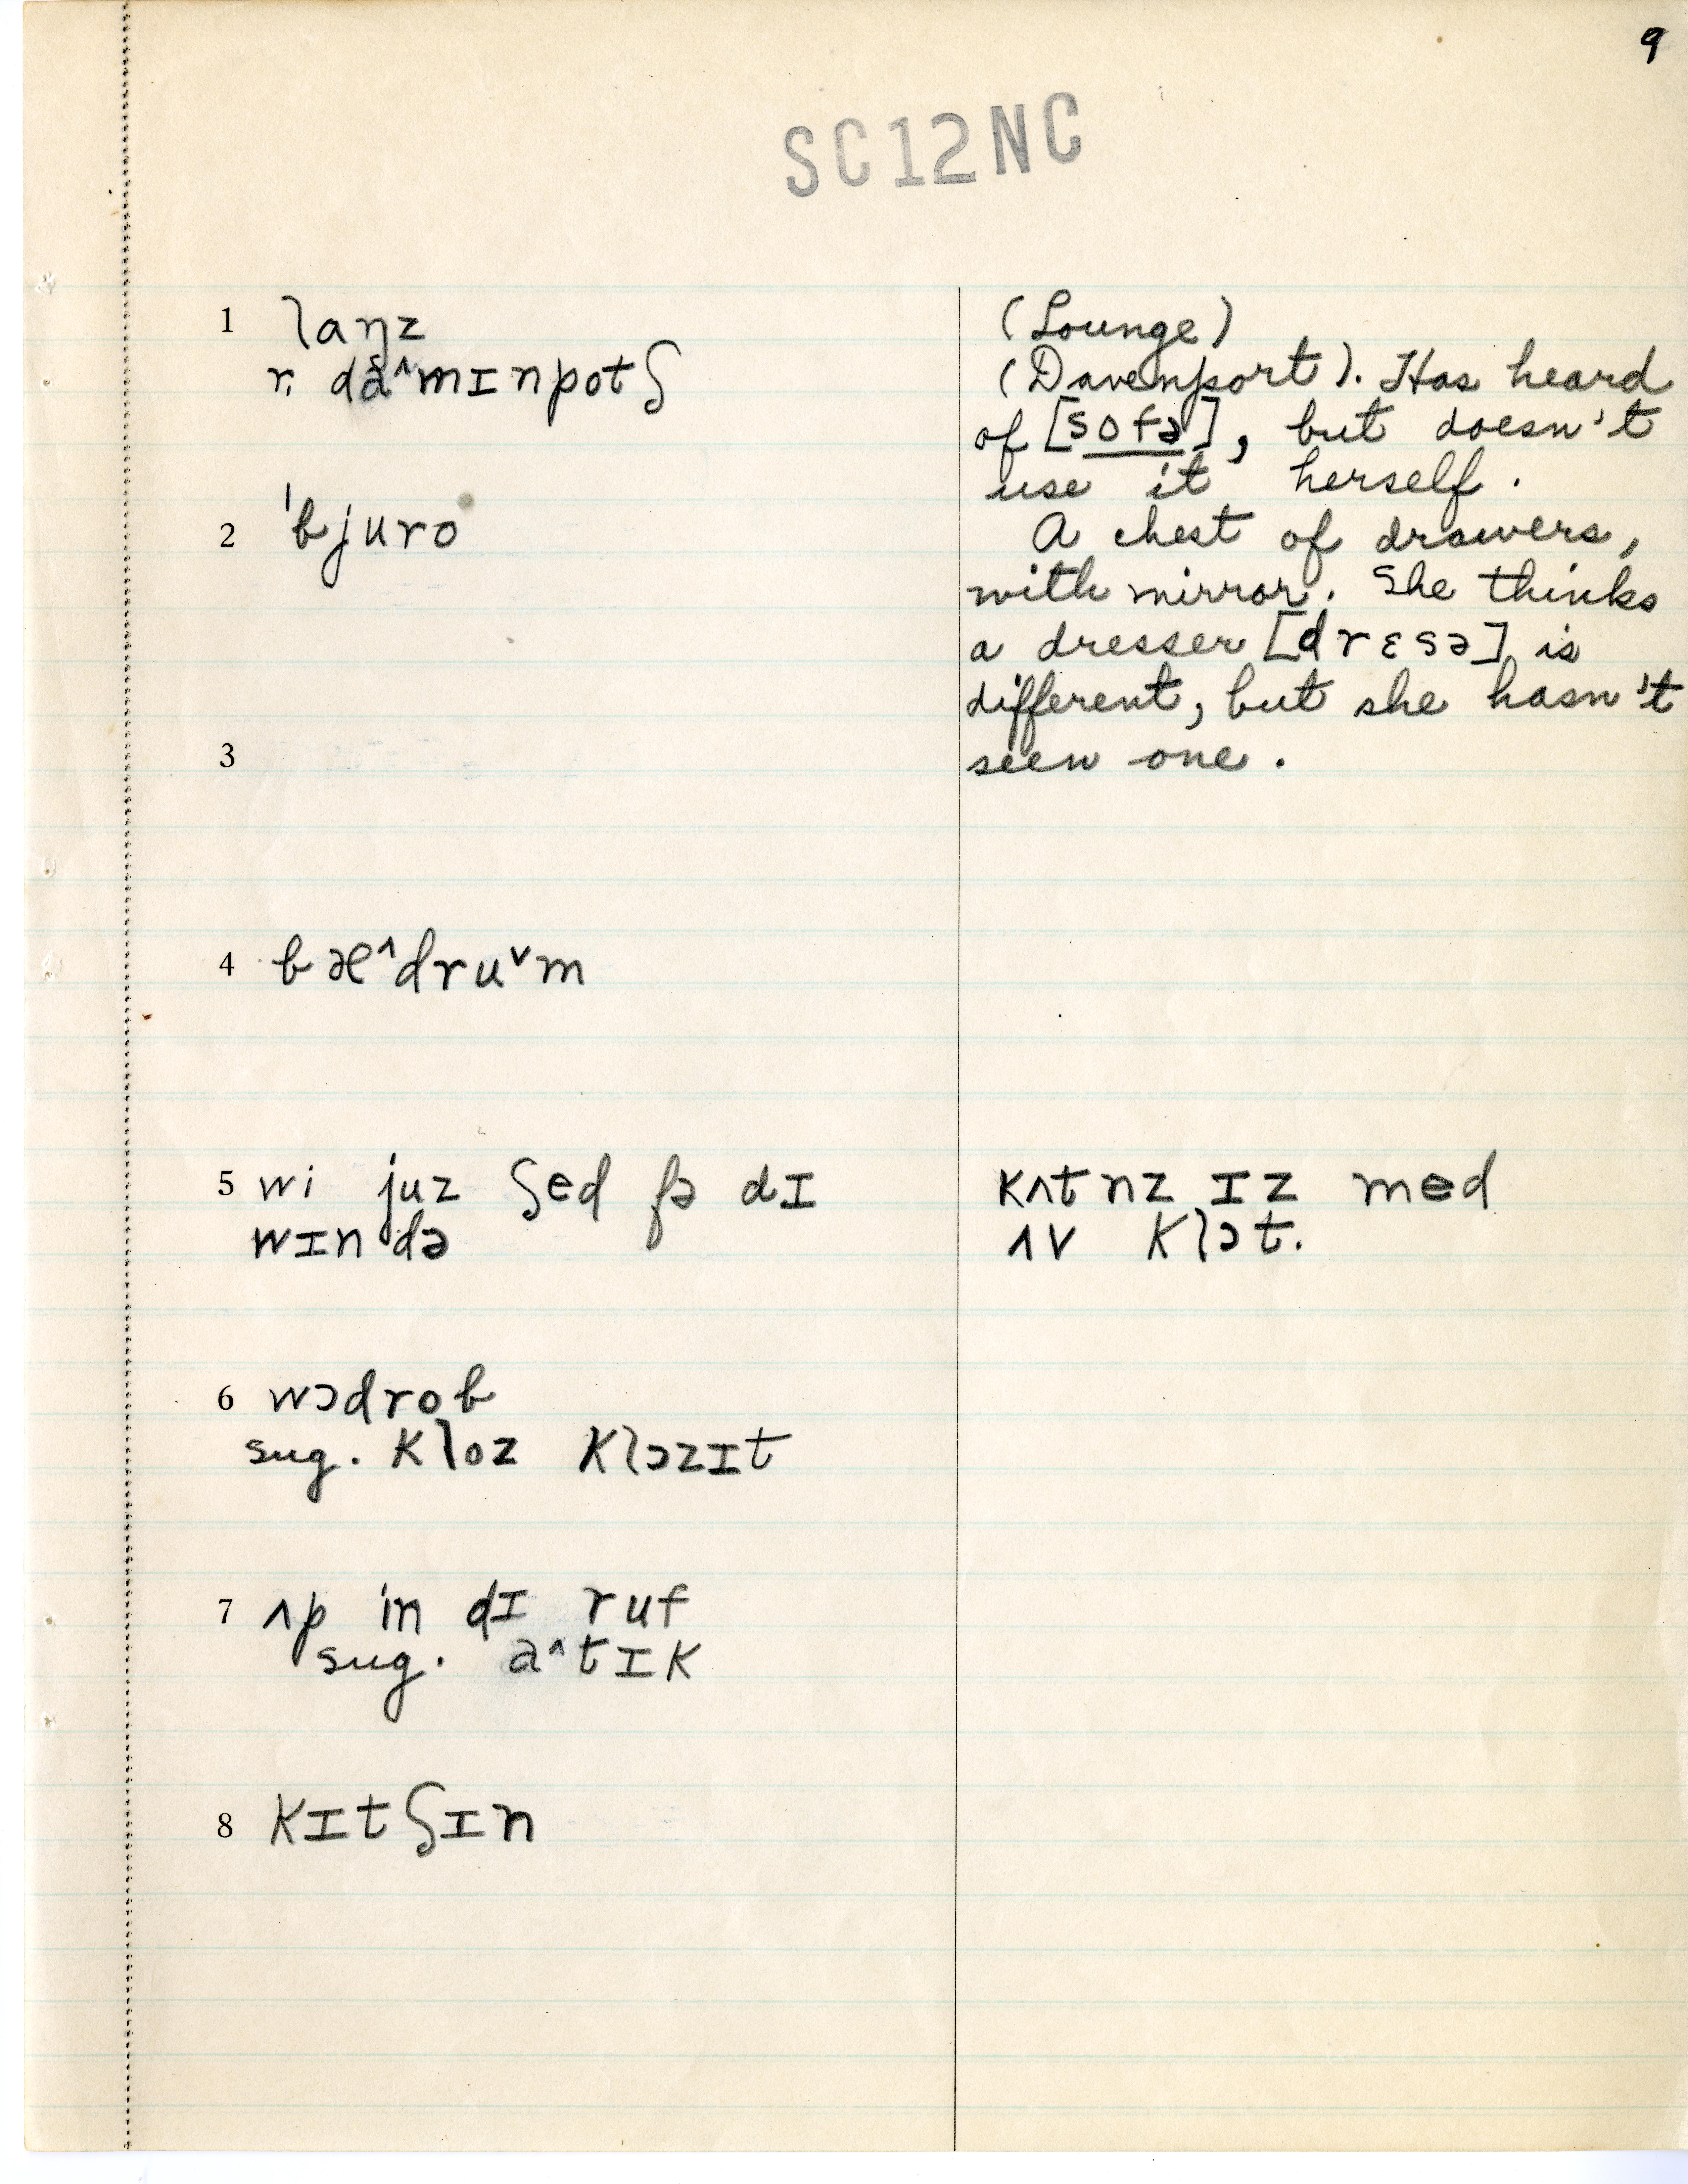 9
SC12NC
1 laŋz
r. da^mɪnpotʃ
(Lounge)
(Davenport). Has heard
of [sofə], but doesn't
use it herself.
2 'bjuro
A chest of drawers,
with mirror. She thinks
a dresser [drɛsə] is
different, but she hasn't
3 seen one.
4 bæ^druᵛm
5 wi juz ʃed fə dɪ
wɪndə
kʌtnz ɪz med
ʌv klɔt.
6 wɔdrob
sug. kloz klɔzɪt
7 ʌp in dɪ ruf
sug. a^tɪk
8 kɪtʃɪn